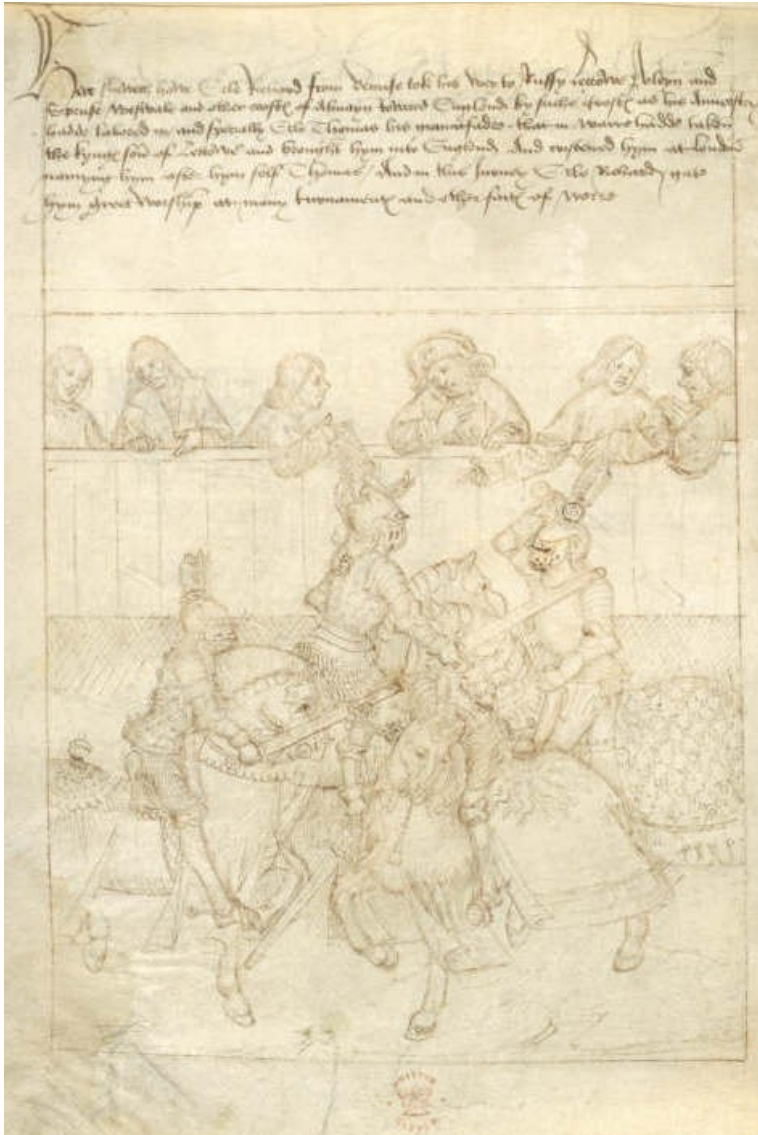 Here shewes howe Erle Richard from Venise tok his wey to Russy lettowe Poleyn and
Spruse Westvale and other costes of Almayn toward Englond by suche costes as his Auncestres
hadde labored in and specially Erle Thomas his grauntfadre that in warre hadde taken
the kynges son of Lettowe and brought hym into Englond And cristened hym at london
namyng hym after hym self Thomas / And in this Jurney Erle Richard gate
hym greet worship at many turnamentes and other faites of werre